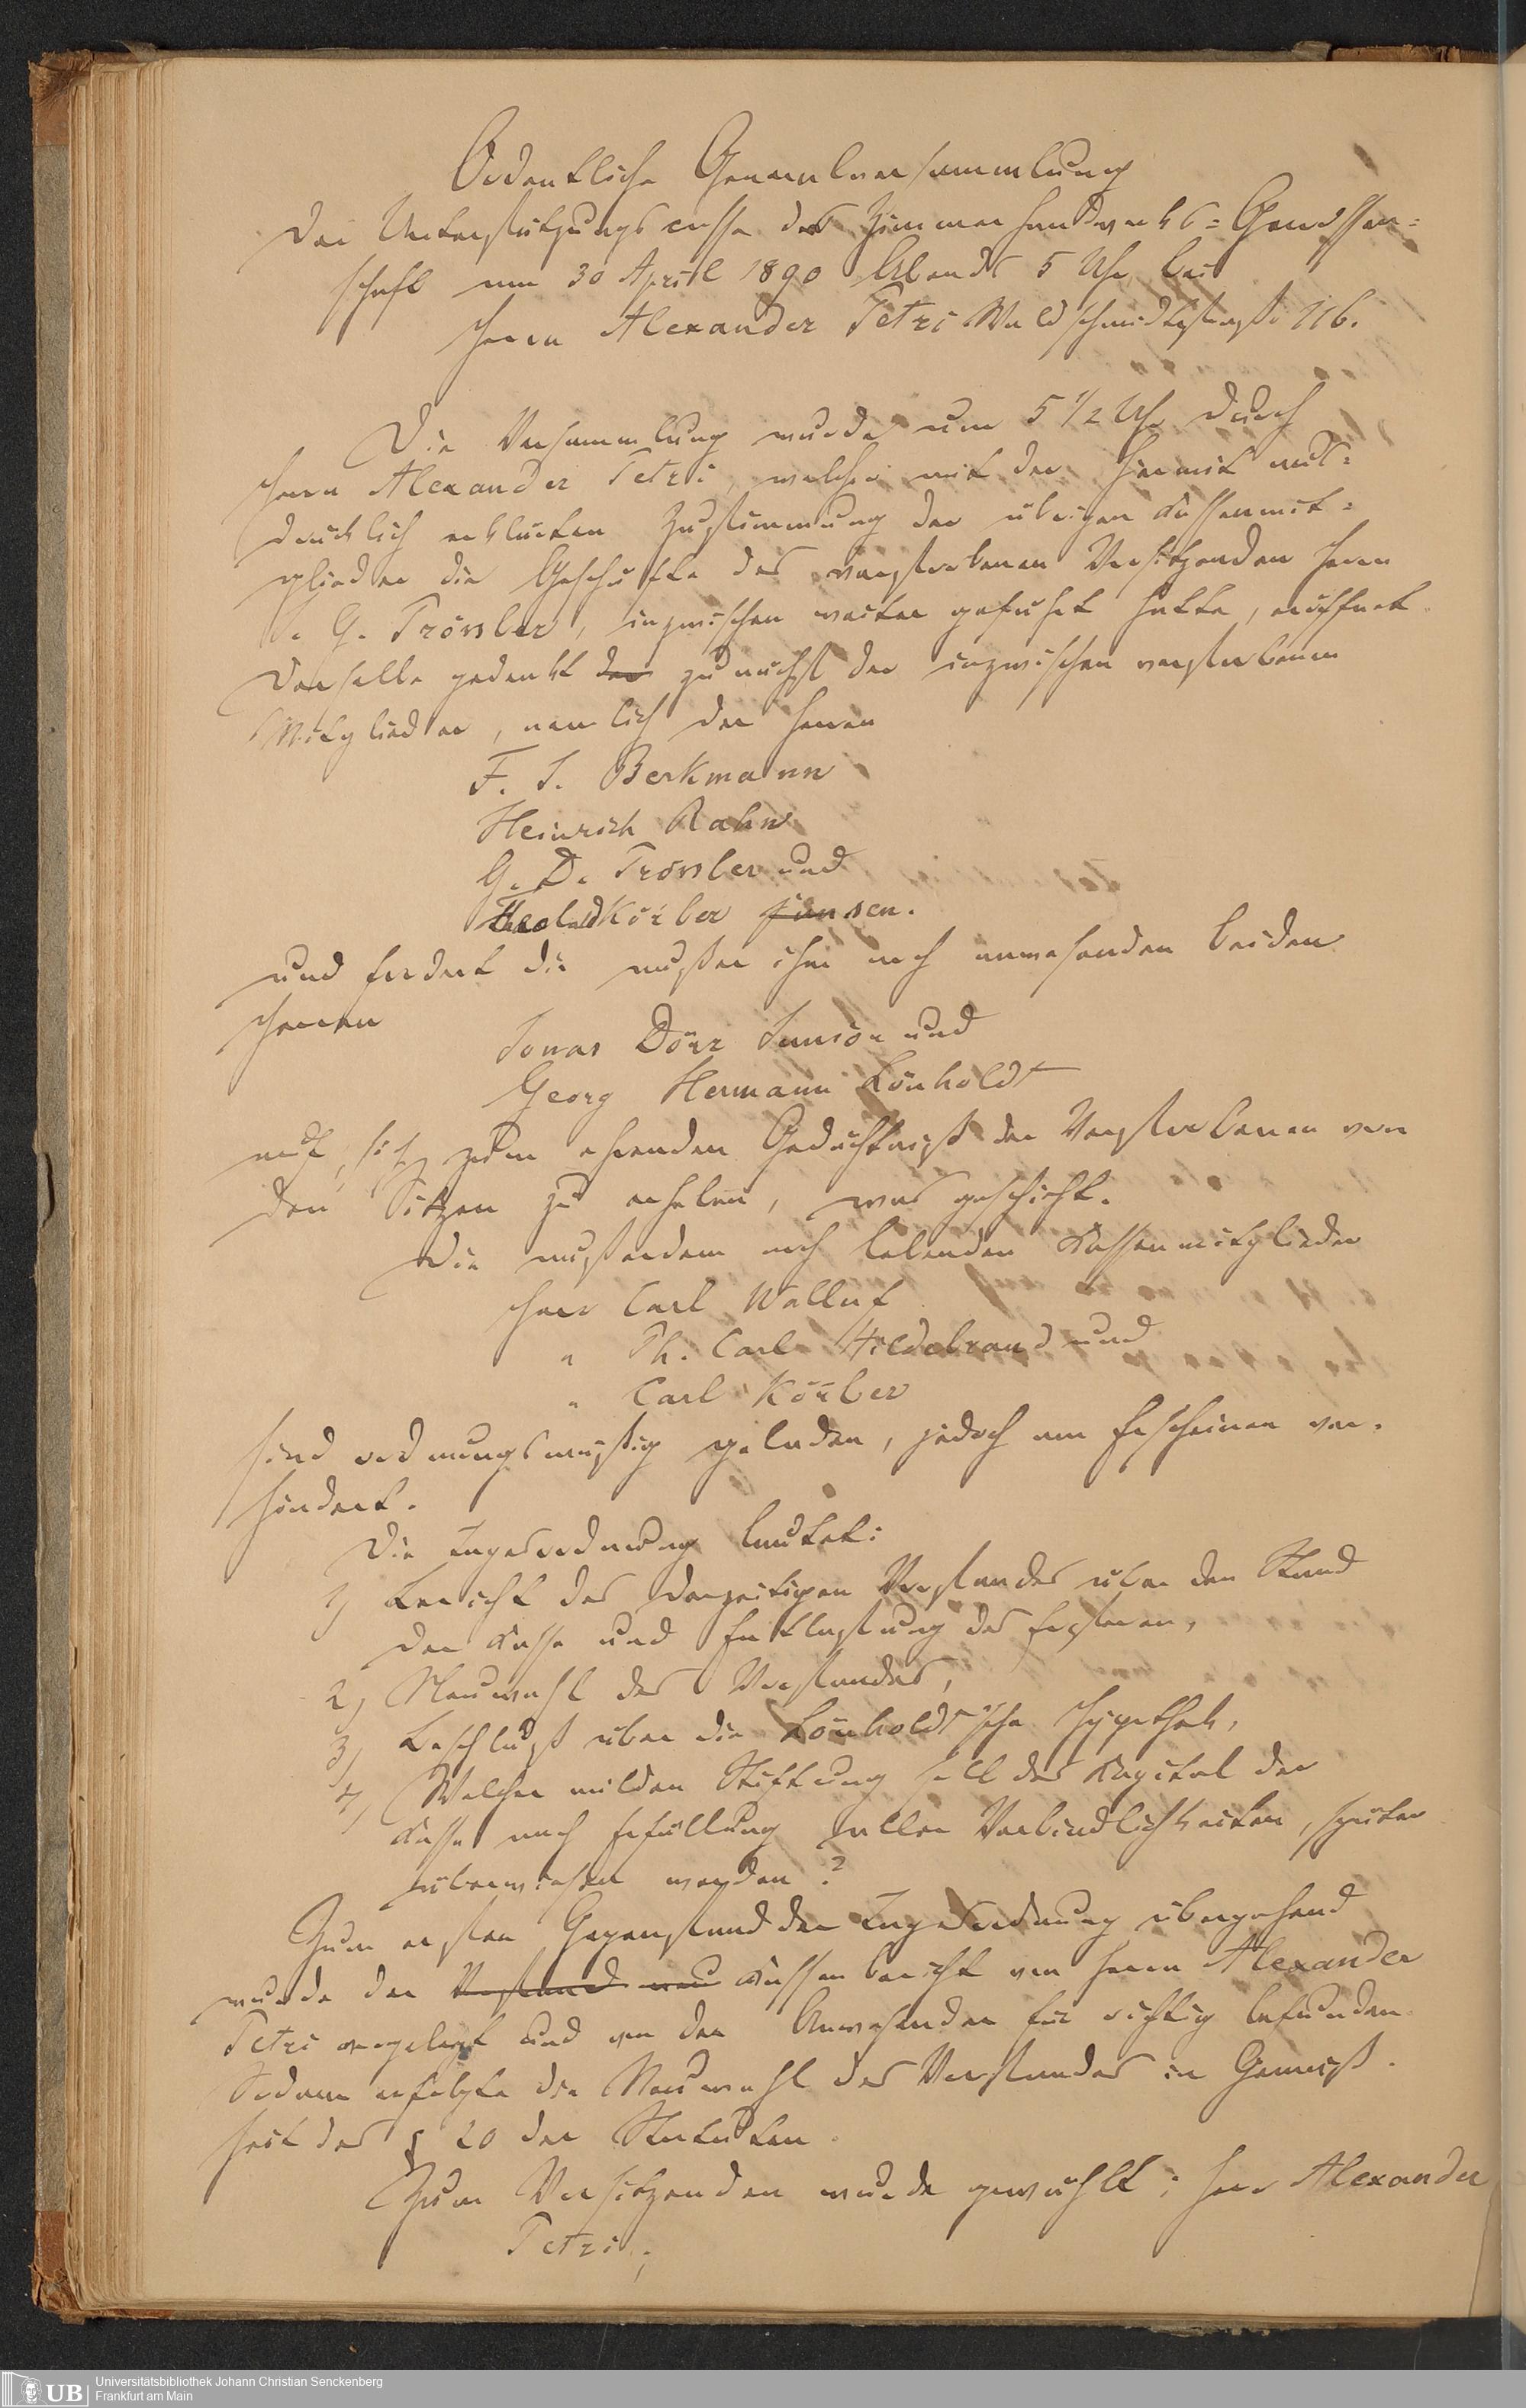 Ordentliche Generalversammlung
der Unterstützungscasse der Zimmerhandwerks=Genossen=
schaft am 30 April 1890 Abends 5 Uhr bei
Herrn Alexander Petri Waldschmidtstraße 116.
Die Versammlung wurde um 5 1/2 Uhr durch
Herrn Alexander Petri, welcher mit der hiermit aus=
drücklich erklärten Zustimmung der übrigen Kassenmit=
glieder die Geschäfte des verstorbenen Vorsitzenden Herrn
J. G. Trössler, inzwischen weiter geführt hatte, eröffnet.
Derselbe gedenkt der zunächst der inzwischen verstorbenen
Mitglieder, nämlich der Herren
F. J. Berkmann
Heinrich Rahn
G. D. Trössler und
Körber jun sen.
und fordert die außer ihm noch anwesenden beiden
Herren
Jonas Dörr Junior und
Georg Hermann Lönholdt
auf, sich zum ehrenden Gedächtniß der Verstorbenen von
den Sitzen zu erheben, was geschieht.
Die außerdem noch lebenden Kassenmitglieder
Herr Carl Walluf
" Ph. Carl Hildebrand und
" Carl Körber
sind ordnungsmäßig geladen, jedoch am Erscheinen ver=
hindert.
Die Tagesordnung lautet:
1) Bericht des derzeitigen Vorstandes über den Stand
der Kasse und Entlastung des Ersteren,
2) Neuwahl des Vorstandes,
3) Beschluß über die Lönholdt'sche Hypothek,
4) Welcher milden Stiftung soll das Kapital der
Kasse nach Erfüllung aller Verbindlichkeiten, später
überwiesen werden?
Zum ersten Gegenstand der Tagesordnung übergehend
wurde der Vorstand neu Kassenbericht von Herrn Alexander
Petri vorgelegt und von den Anwesenden für richtig befunden.
Sodann erfolgte die Neuwahl des Vorstandes in Gemäß=
heit des § 20 der Statuten.
Zum Vorsitzenden wurde gewählt: Herr Alexander
Petri;
UB Universitätsbibliothek Johann Christian Senckenberg
Frankfurt am Main